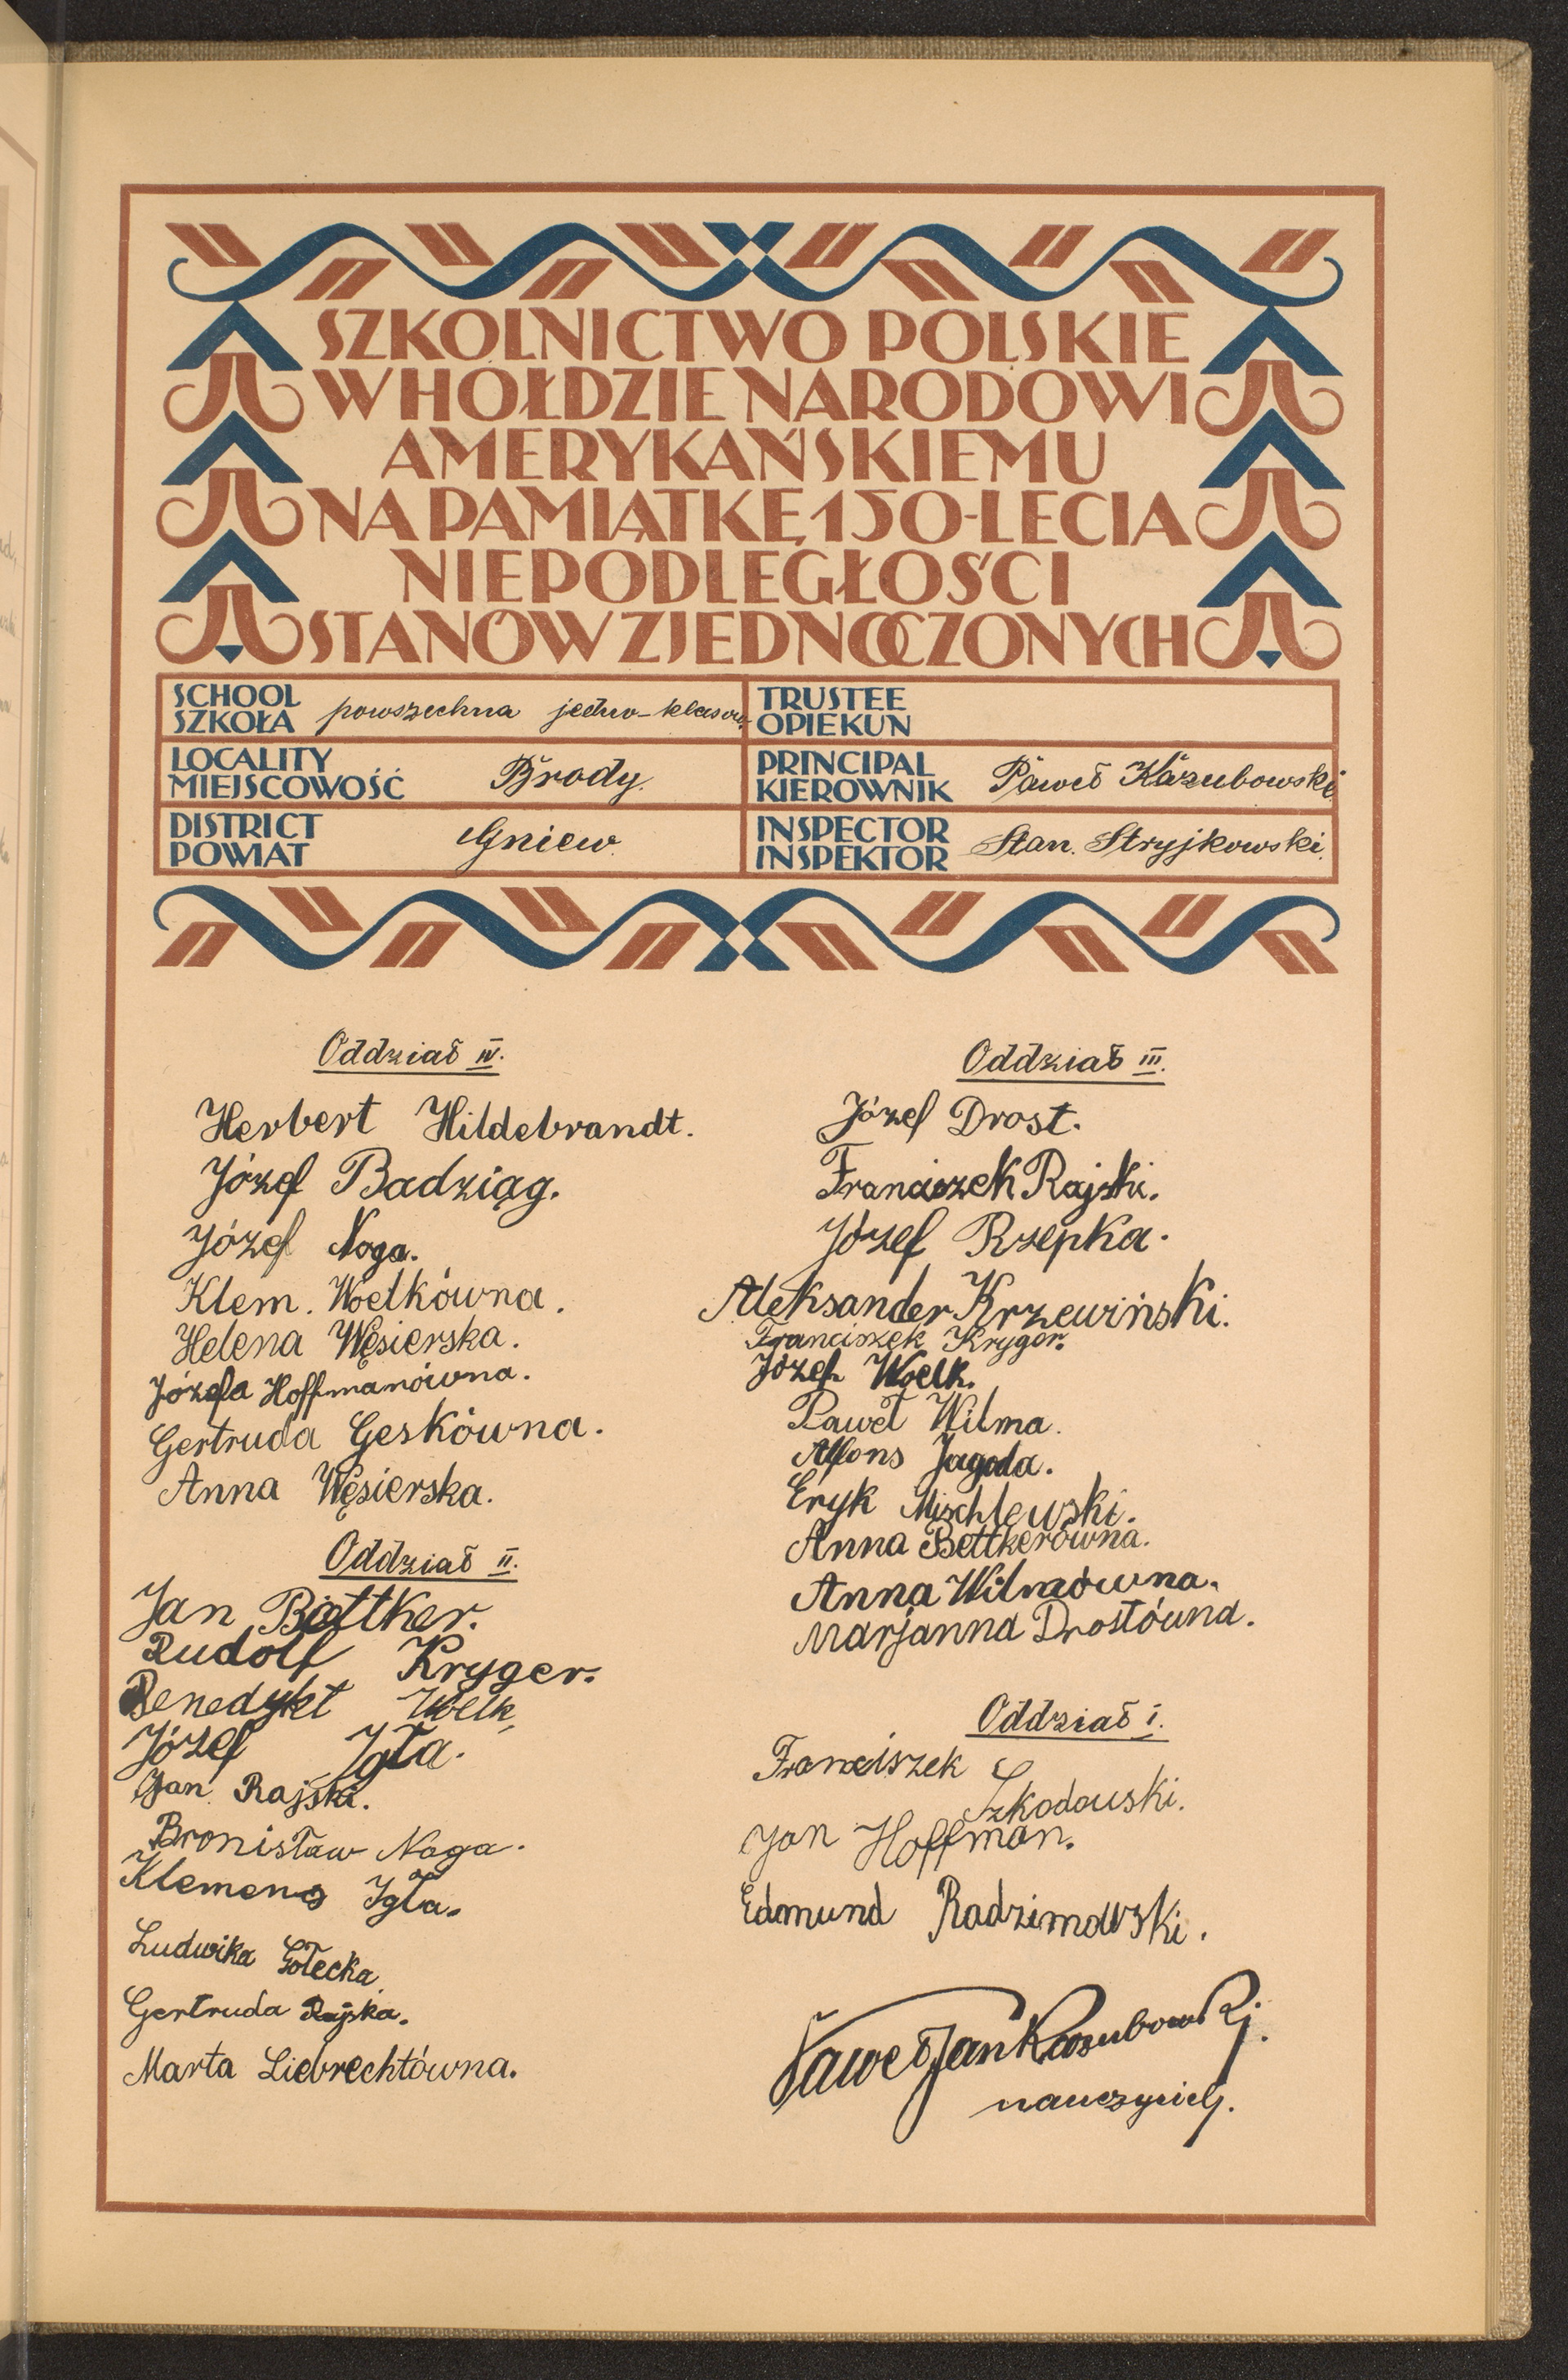 SZKOLNICTWO POLSKIE
W HOŁDZIE NARODOWI
AMERYKAŃSKIEMU
NA PAMIĄTKĘ 150-LECIA
NIEPODLEGŁOŚCI
STANÓW ZJEDNOCZONYCH
SCHOOL
SZKOŁA powszechna jedno-klasow.
TRUSTEE
OPIEKUN
LOCALITY
MIEJSCOWOŚĆ Brody.
PRINCIPAL
KIEROWNIK Paweł Kazubowski
DISTRICT
POWIAT Gniew.
INSPECTOR
INSPEKTOR Stan. Stryjkowski.
Oddział IV.
Herbert Hildebrandt.
Józef Badziąg.
Józef Noga.
Klem. Woelkówna.
Helena Węsierska.
Józefa Hoffmanówna.
Gertruda Geskówna.
Anna Węsierska.
Oddział II.
Jan Bettker.
Rudolf Kryger.
Benedykt Woelk,
Józef Igła.
Jan Rajski.
Bronisław Noga.
Klemens Igła.
Ludwika Gołecka
Gertruda Rajska.
Marta Liebrechtówna.
Oddział III.
Józef Drost.
Franciszek Rajski.
Józef Rzepka.
Aleksander Krzewiński.
Franciszek Kryger.
Józef Woelk.
Paweł Wilma.
Alfons Jagoda.
Eryk Mischlewski.
Anna Bettkerówna.
Anna Wilmówna.
Marjanna Drostówna.
Oddział I.
Franciszek
Szkodowski.
Jan Hoffman.
Edmund Radzimowski.
Paweł Jan Kazubowski.
nauczyciel.